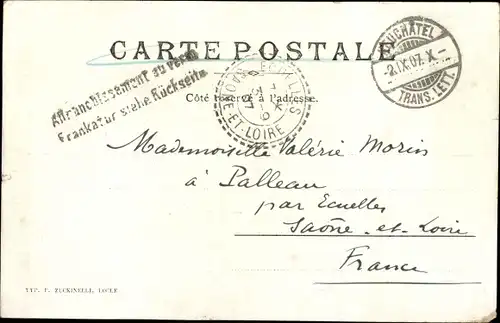 CARTE POSTALE
Affranchissement au verso
Frankatur siehe Rückseite
NEUCHÂTEL
-2.IX.07.X-
TRANS. LETT.
ECUELLES
SAONE-ET-LOIRE
Côté réservé à l'adresse.
Mademoiselle Valérie Morin
à Palleau
par Ecuelles
Saône-et-Loire
France
TYP. F. ZUCKINELLI, LOCLE